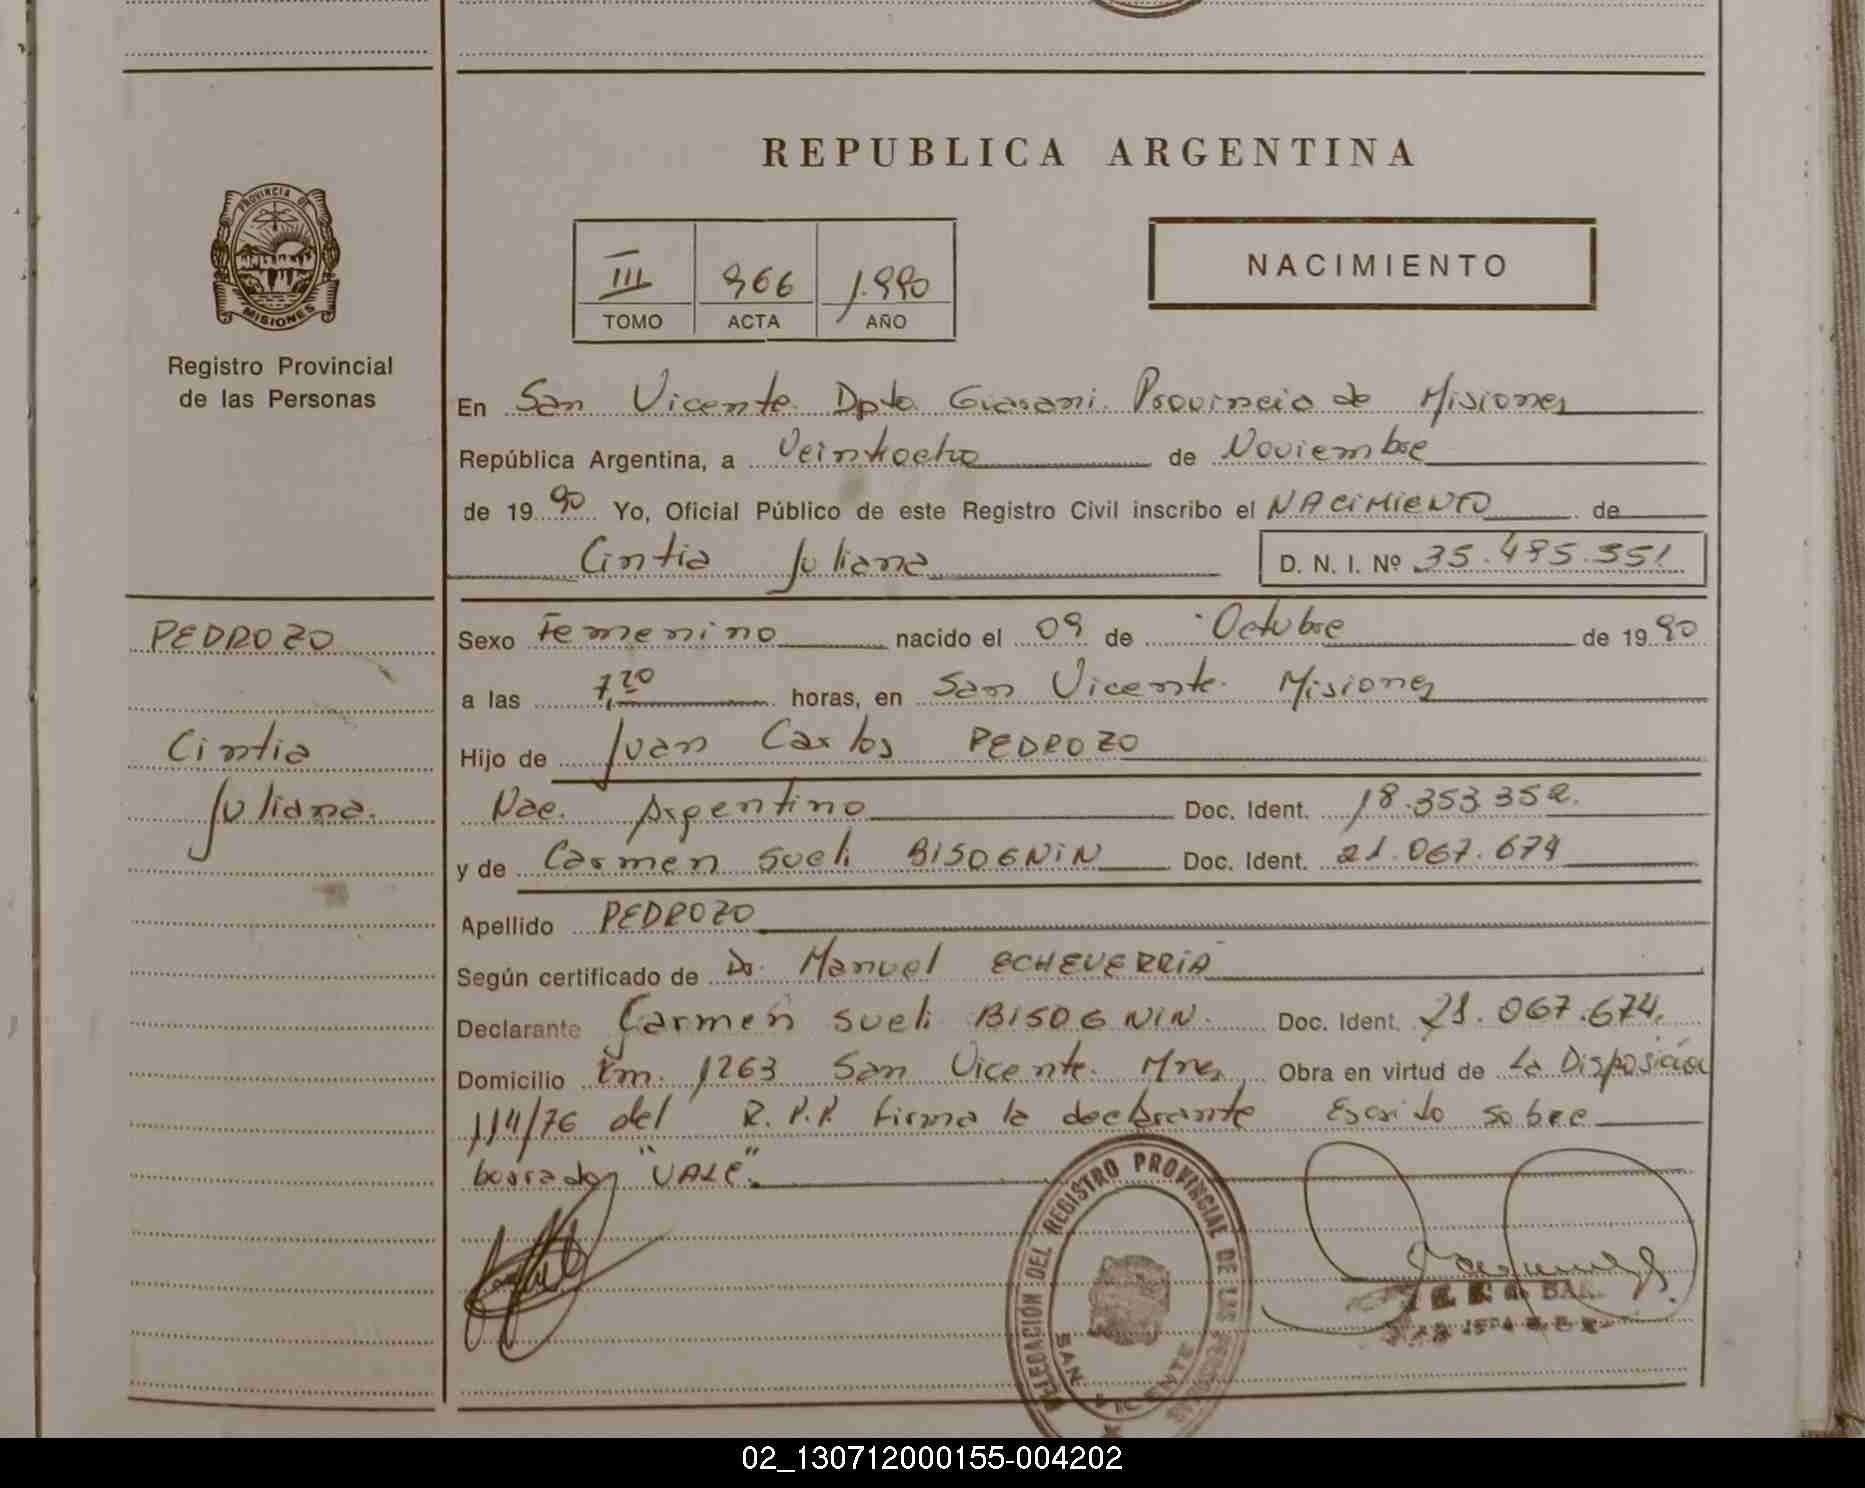 PROVINCIA DE
MISIONES
Registro Provincial
de las Personas
REPUBLICA ARGENTINA
III 966 1.990
TOMO ACTA AÑO
NACIMIENTO
En San Vicente Dpto. Guarani. Provincia de Misiones
República Argentina, a Veintiocho de Noviembre
de 1990 Yo, Oficial Público de este Registro Civil inscribo el NACIMIENTO de
Cintia Juliana D. N. I. Nº 35.495.551
PEDROZO
Cintia
Juliana.
Sexo Femenino nacido el 09 de Octubre de 1990
a las 7,20 horas, en San Vicente. Misiones
Hijo de Juan Carlos PEDROZO
Nac. Argentino Doc. Ident. 18.353.352.
y de Carmen Sueli BISOGNIN Doc. Ident. 21.067.674
Apellido PEDROZO
Según certificado de Dr. Manuel ECHEVERRIA
Declarante Carmen Sueli BISOGNIN. Doc. Ident. 21.067.674.
Domicilio Km. 1263 San Vicente. Mnes, Obra en virtud de La Disposición
114/76 del R.P.P. firma la declarante Escrito sobre
borrado "VALE".
DELEGACIÓN DEL REGISTRO PROVINCIAL DE LAS PERSONAS
SAN VICENTE
02_130712000155-004202